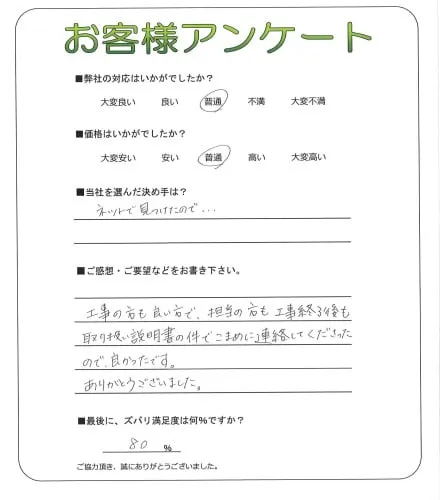 お客様アンケート
■弊社の対応はいかがでしたか？
大変良い 良い 普通 不満 大変不満
■価格はいかがでしたか？
大変安い 安い 普通 高い 大変高い
■当社を選んだ決め手は？
ネットで見つけたので…
■ご感想・ご要望などをお書き下さい。
工事の方も良い方で、担当の方も工事終了後も
取り扱い説明書の件でこまめに連絡してくださった
ので、良かったです。
ありがとうございました。
■最後に、ズバリ満足度は何%ですか？
80 %
ご協力頂き、誠にありがとうございました。